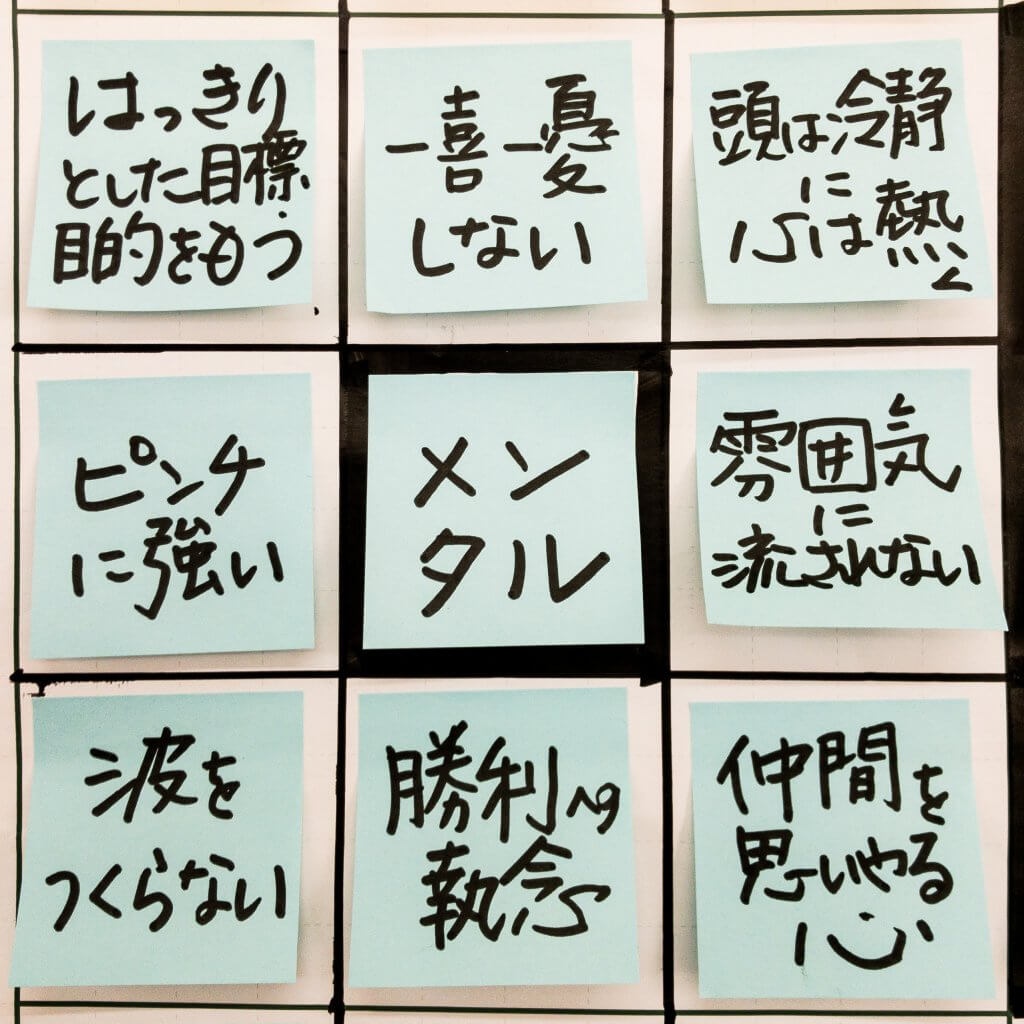 はっきり
とした目標・
目的をもつ
一喜一憂
しない
頭は冷静
に
心は熱
く
ピンチ
に強い
メン
タル
雰囲気
に
流されない
波を
つくらない
勝利への
執念
仲間を
思いやる
心